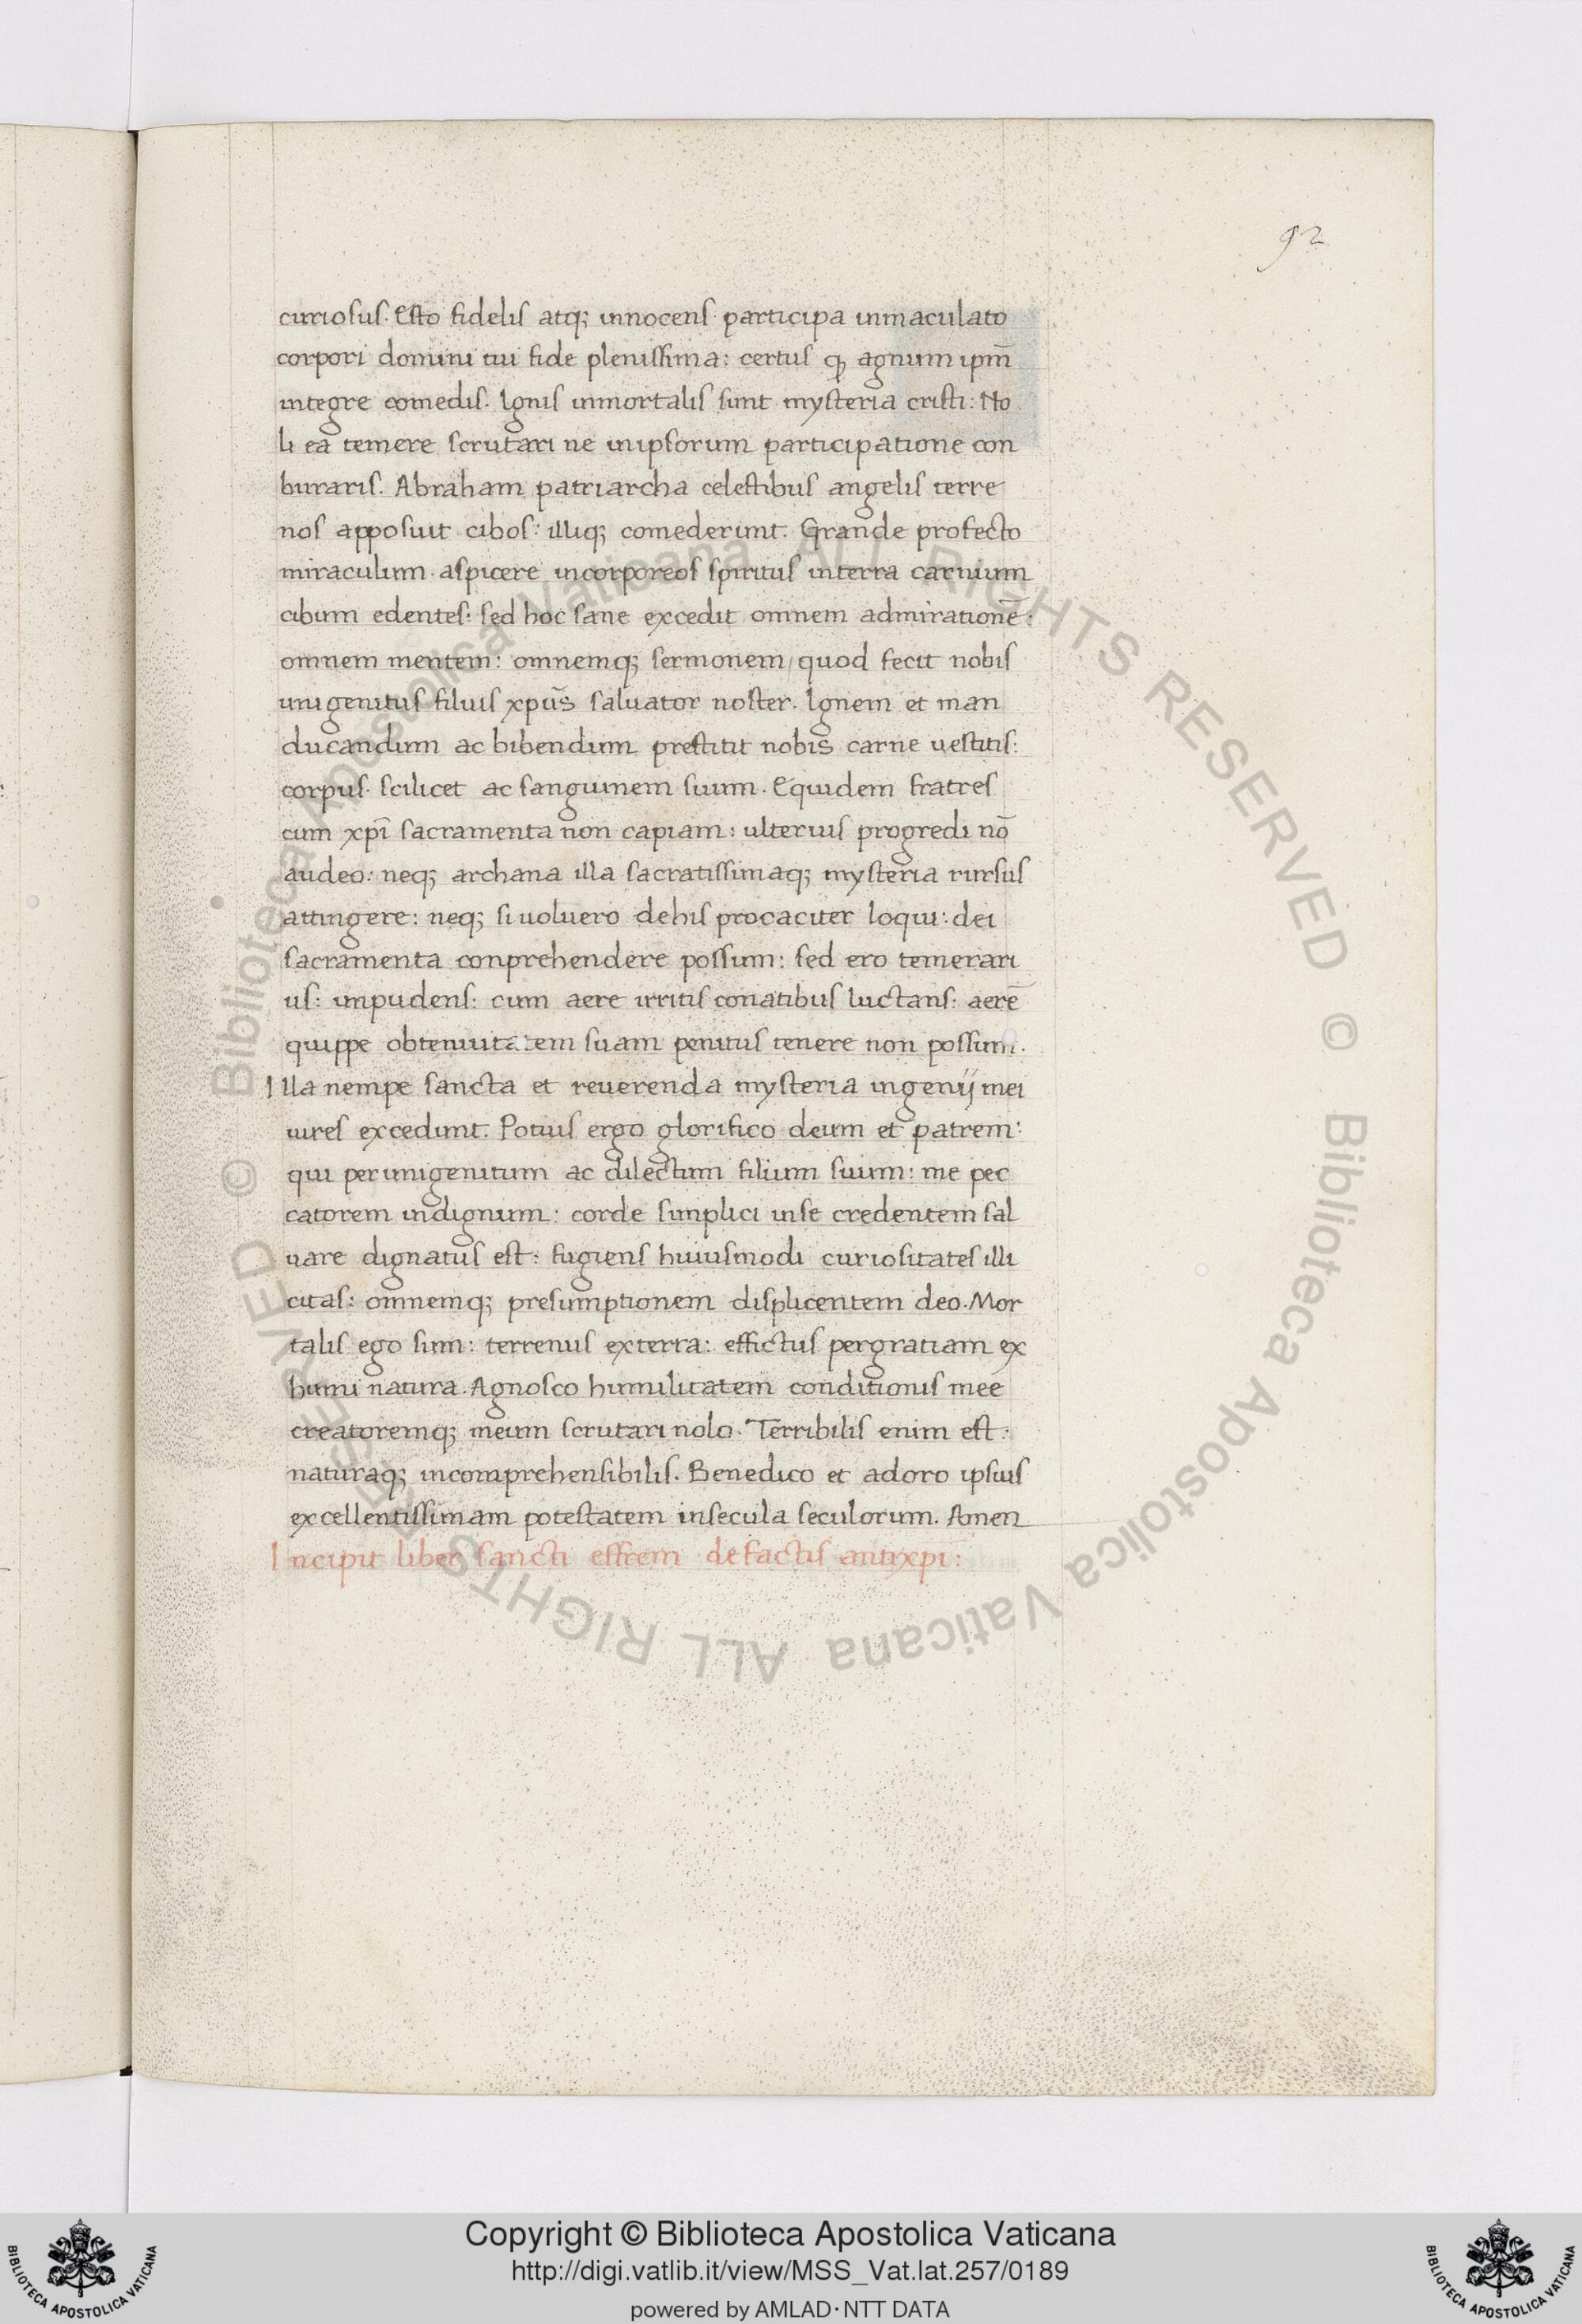 92
curiosus. Esto fidelis atq; innocens participa inmaculato
corpori domini tui fide plenissima: certus ꝙ agnum ipm̄
integre comedis. Ignis inmortalis sunt mysteria cristi: No
li ea temere scrutari ne inipsorum participatione con
buraris. Abraham patriarcha celestibus angelis terre
nos apposuit cibos: illiq; comederunt. Grande profecto
miraculum aspicere incorporeos spiritus interra carnium
cibum edentes: sed hoc sane excedit omnem admirationē:
omnem mentem: omnemq; sermonem/ quod fecit nobis
unigenitus filius xpūs saluator noster. Ignem et man
ducandum ac bibendum prestitit nobis carne uestitis:
corpus. scilicet ac sanguinem suum. Equidem fratres
cum xpī sacramenta non capiam: ulterius progredi nō
audeo: neq; archana illa sacratissimaq; mysteria rursus
attingere: neq; si uoluero dehis procaciter loqui: dei
sacramenta conprehendere possum: sed ero temerari
us: impudens: cum aere irritis conatibus luctans: aerē
quippe obtenuitatem suam penitus tenere non possum.
Illa nempe sancta et reuerenda mysteria ingenij mei
uires excedunt. Potius ergo glorifico deum et patrem:
qui perunigenitum ac dilectum filium suum: me pec
catorem indignum: corde simplici inse credentem sal
uare dignatus est: fugiens huiusmodi curiositates illi
citas: omnemq; presumptionem displicentem deo. Mor
talis ego sum: terrenus exterra: effictus pergratiam ex
humi natura. Agnosco humilitatem conditionis mee
creatoremq; meum scrutari nolo. Terribilis enim est:
naturaq; incomprehensibilis. Benedico et adoro ipsius
excellentissimam potestatem insecula seculorum. Amen
Incipit liber sancti effrem defactis antixpi:
© Biblioteca Apostolica Vaticana ALL RIGHTS RESERVED © Biblioteca Apostolica Vaticana ALL RIGHTS RESERVED
Copyright © Biblioteca Apostolica Vaticana
http://digi.vatlib.it/view/MSS_Vat.lat.257/0189
powered by AMLAD·NTT DATA
BIBLIOTECA APOSTOLICA VATICANA
BIBLIOTECA APOSTOLICA VATICANA